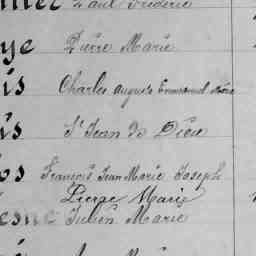 Paul Frédéric
ye Pierre Marie
is Charles Auguste Emmanuel Marie
is St Jean de Dieu
os François Jean Marie Joseph
Pierre Marie
esne Julien Marie